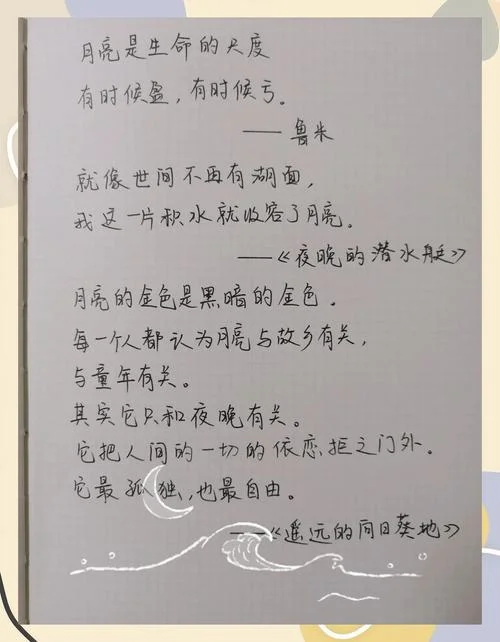 月亮是生命的尺度
有时候盈，有时候亏。
——鲁米
就像世间不再有湖面，
我这一片积水就收容了月亮。
——《夜晚的潜水艇》
月亮的金色是黑暗的金色．
每一个人都认为月亮与故乡有关，
与童年有关。
其实它只和夜晚有关。
它把人间的一切的依恋拒之门外．
它最孤独，也最自由。
——《遥远的向日葵地》